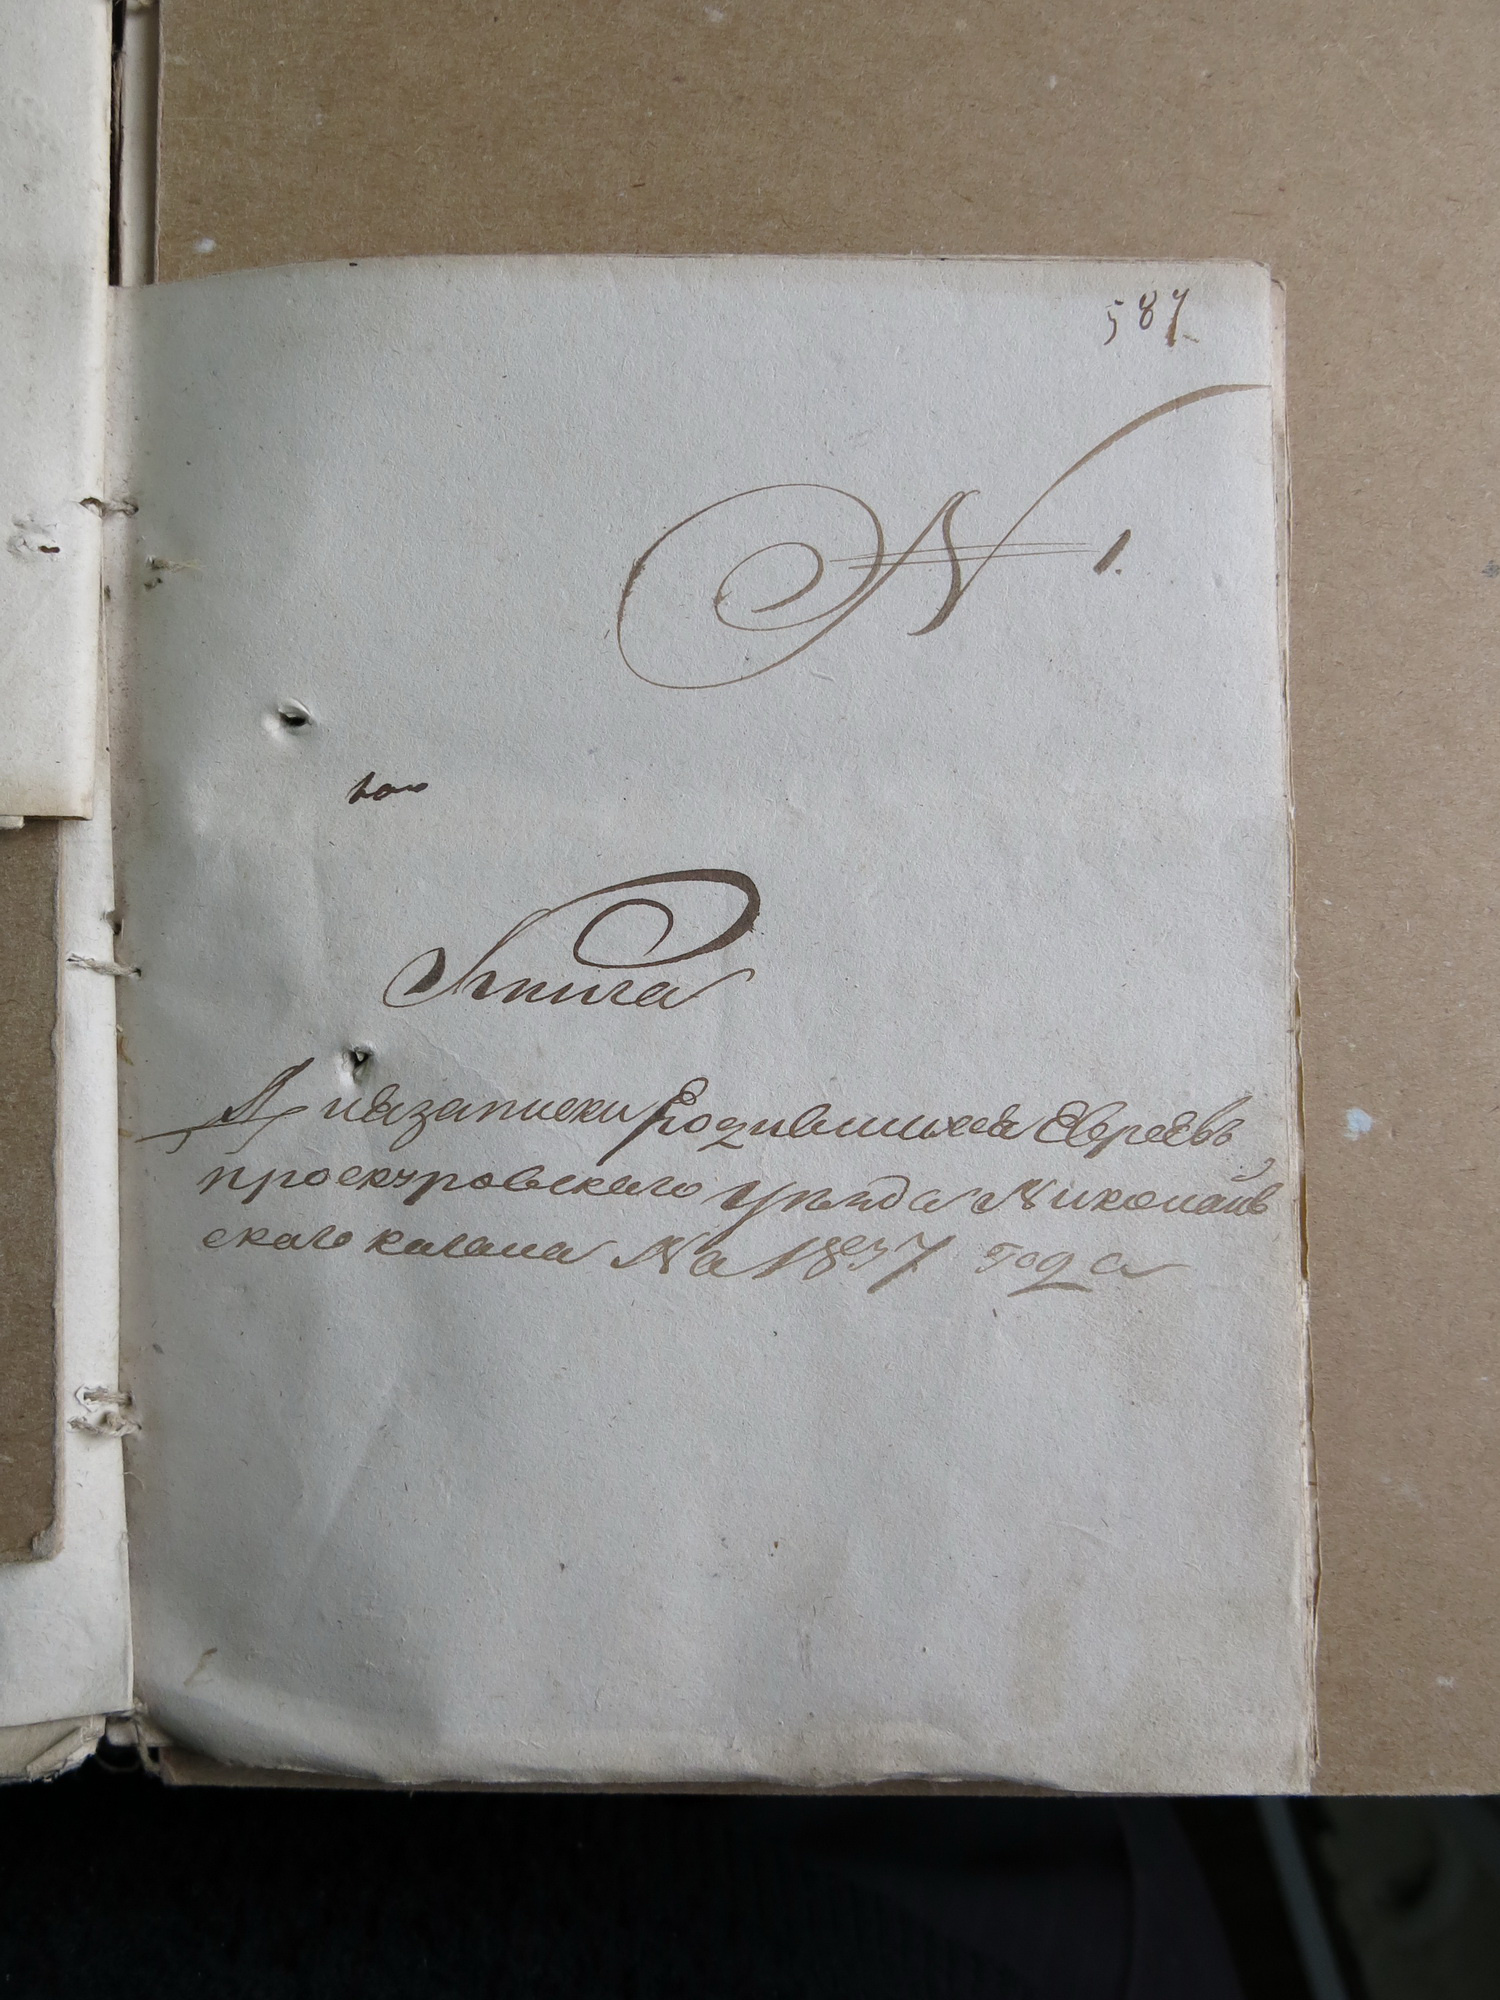 587
№ 1.
Книга
Для записки родившихся Евреевъ
проскуровскаго уѣзда Николаев
скаго кагала На 1837 года